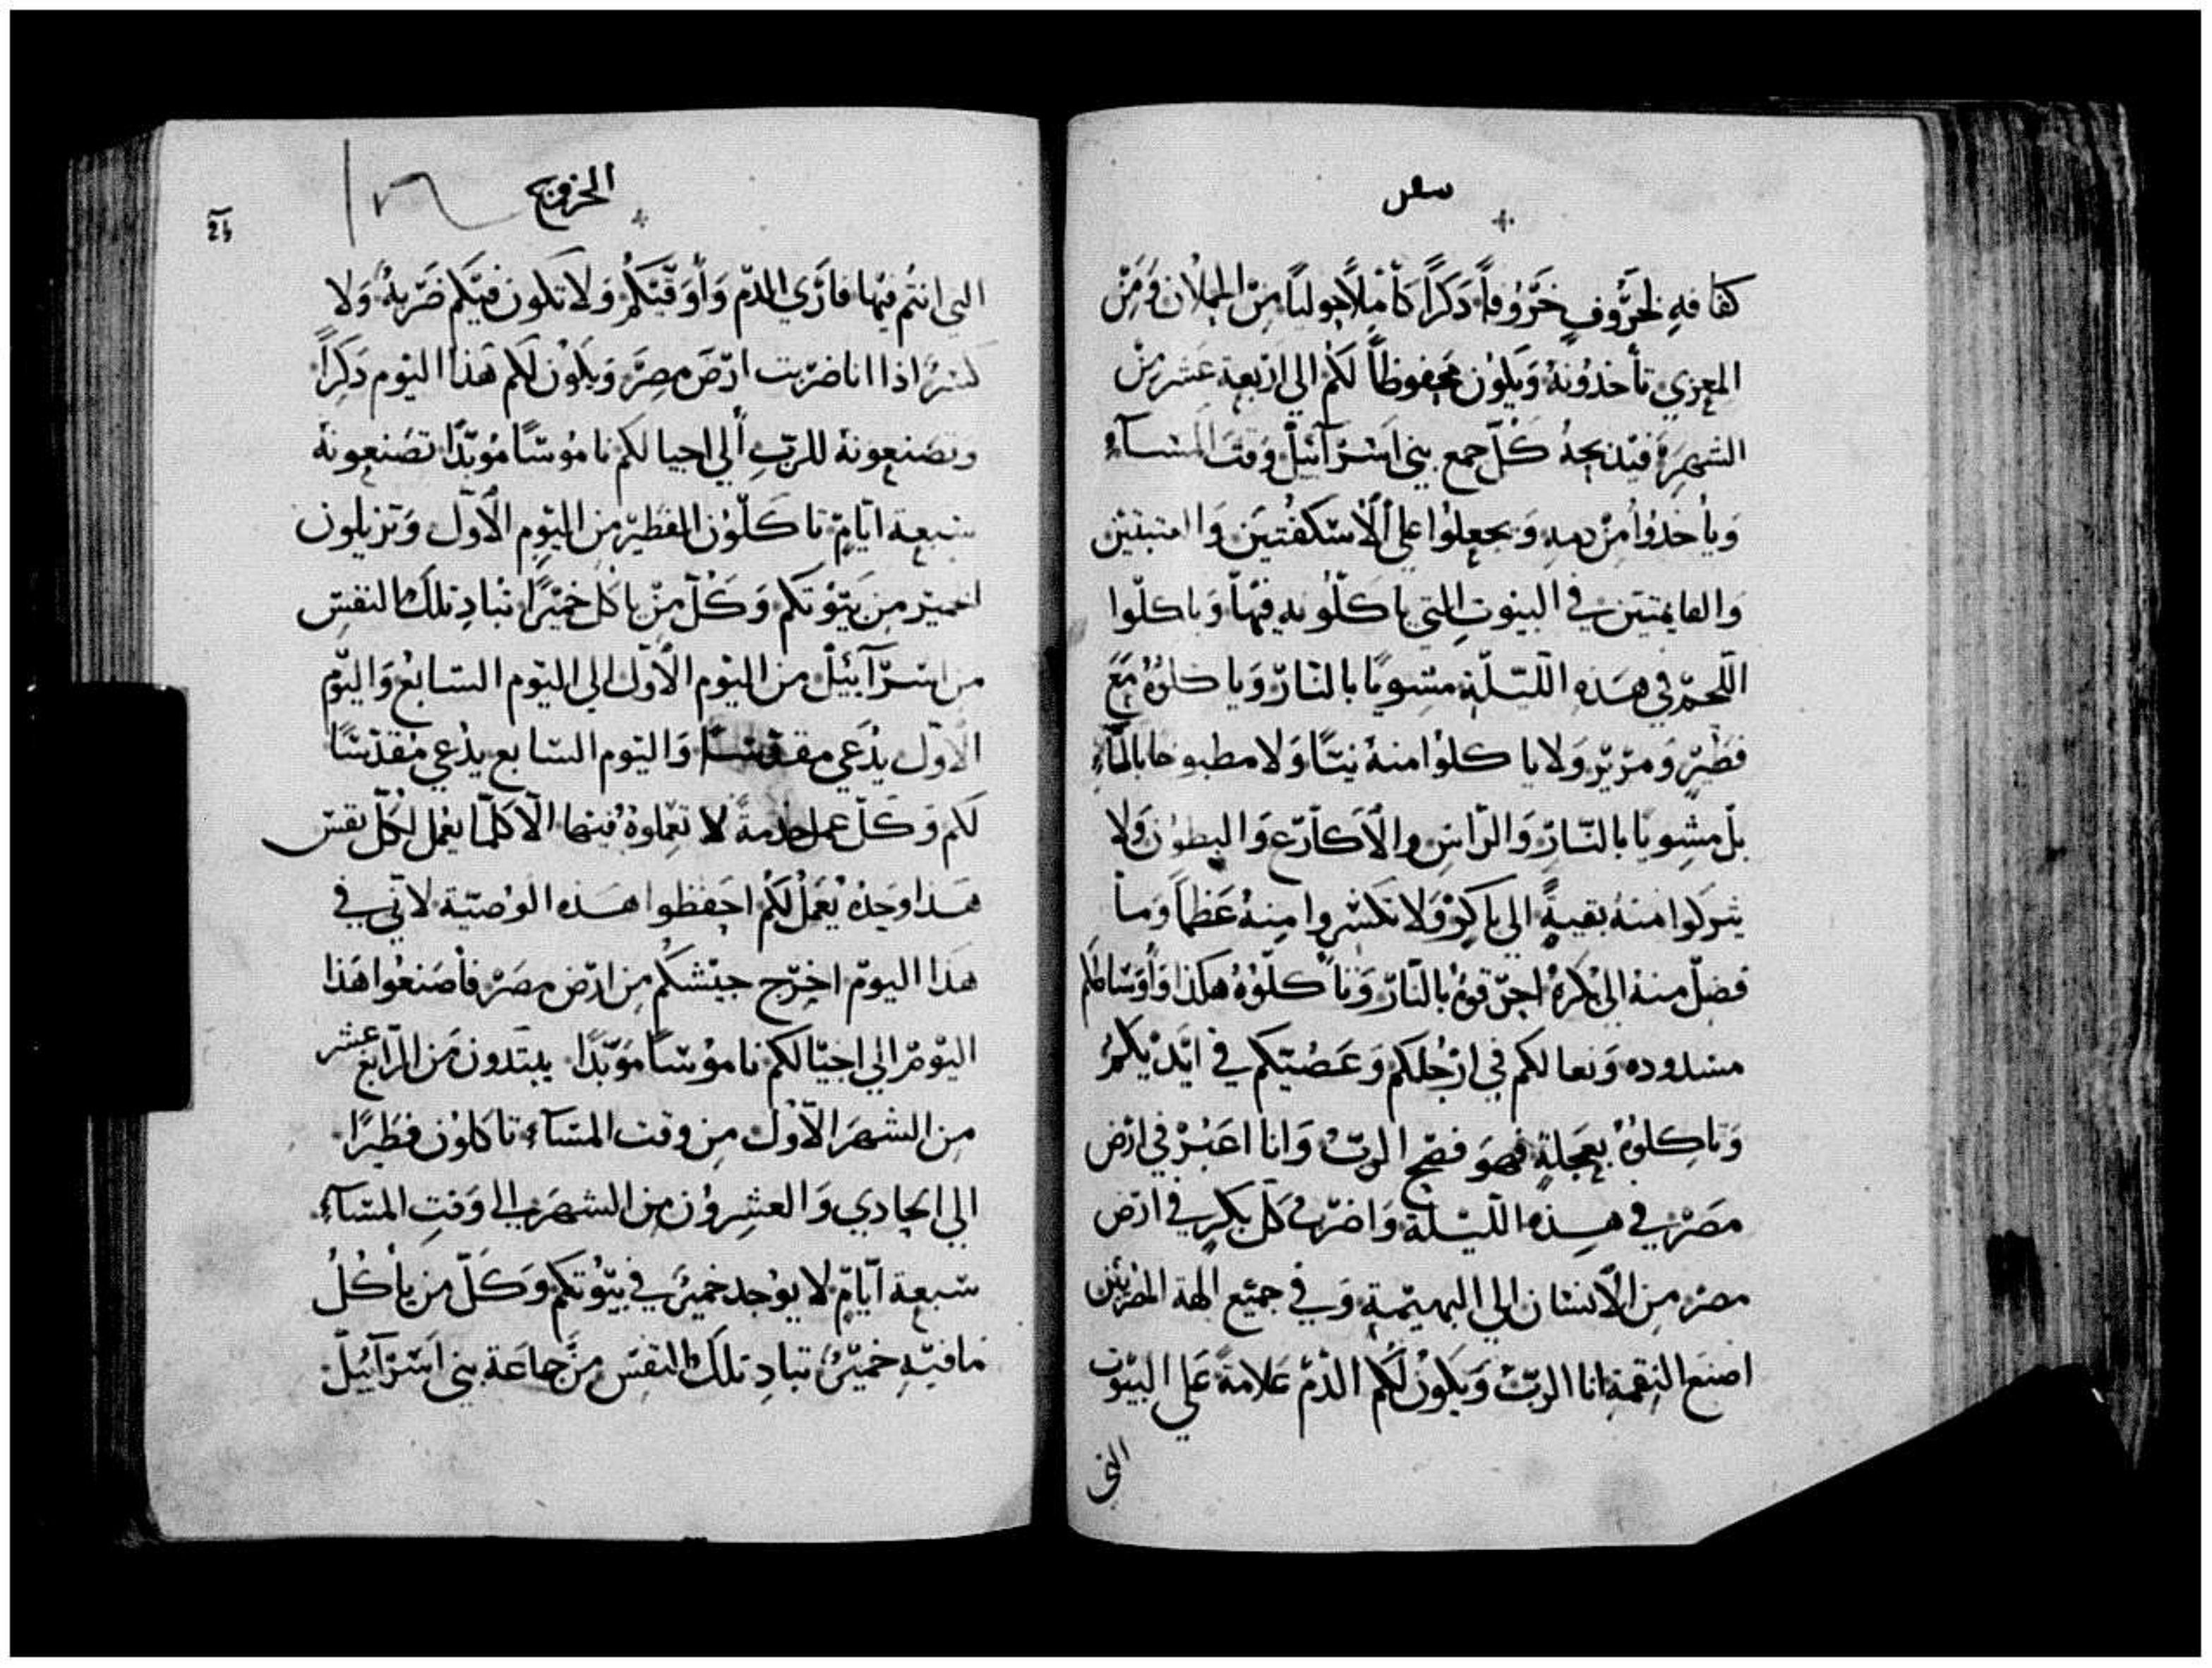 سفر
كفافه لخروف خروفاً دكراً كاملاً حولياً من الحملان ومن
المعزي تأخدونه ويكون محفوظاً لكم الي اربعة عشر من
الشهر فيذبحه كل جمع بني اسرآئيل وقت المسآء
ويأخدوا من دمه ويجعلوا علي الاسكفتين والعتبتين
والقايمتين في البيوت التي ياكلونه فيها وياكلوا
اللحم في هذه الليلة مشوياً بالنار وياكلوه مع
فطير ومرير ولا ياكلوا منه نيئاً ولا مطبوخا بالمآء
بل مشويا بالنار والراس والاكارع والبطون ولا
يتركوا منه بقيةً الي باكر ولا تكسروا منه عظماً وما
فضل منه الي بكره احرقوه بالنار وتاكلوه هكذا واوساطكم
مشدوده ونعالكم في ارجلكم وعصيكم في ايديكم
وتاكلوه بعجلةٍ فهو فصح الرب وانا اعبر في ارض
مصر في هذه الليلة واضرب كل بكرٍ في ارض
مصر من الانسان الي البهيمة وفي جميع الهة المصريين
اصنع النقمة انا الرب ويكون لكم الدم علامةً علي البيوت
التي
الخروج
التي انتم فيها فاري الدم واوقيكم ولا تكون فيكم ضربة ولا
كسرً اذا انا ضربت ارض مصر ويكون لكم هذا اليوم دكراً
وتصنعونه للرب الي اجيالكم ناموساً موبداً تصنعونه
سبعة ايام تاكلون الفطير من اليوم الاول وتزيلون
الخمير من بيوتكم وكل من ياكل خميراً تباد تلك النفس
من اسرآئيل من اليوم الاول الي اليوم السابع واليوم
الاول يدعي مقدساً واليوم السابع يدعي مقدساً
لكم وكل عمل خدمة لا تعملوه فيها الا كلما يعمل لكل نفس
هذا وحده يعمل لكم احفظوا هذه الوصية لاني في
هذا اليوم اخرج جيشكم من ارض مصر فأصنعوا هذا
اليوم الي اجيالكم ناموساً موبداً يبتدون من الرابع عشر
من الشهر الاول من وقت المسآء تاكلون فطيراً
الي الحادي والعشرون من الشهر الي وقت المسآء
سبعة ايام لا يوجد خمير في بيوتكم وكل من يأكل
مافيه خمير تباد تلك النفس من جماعة بني اسرآئيل